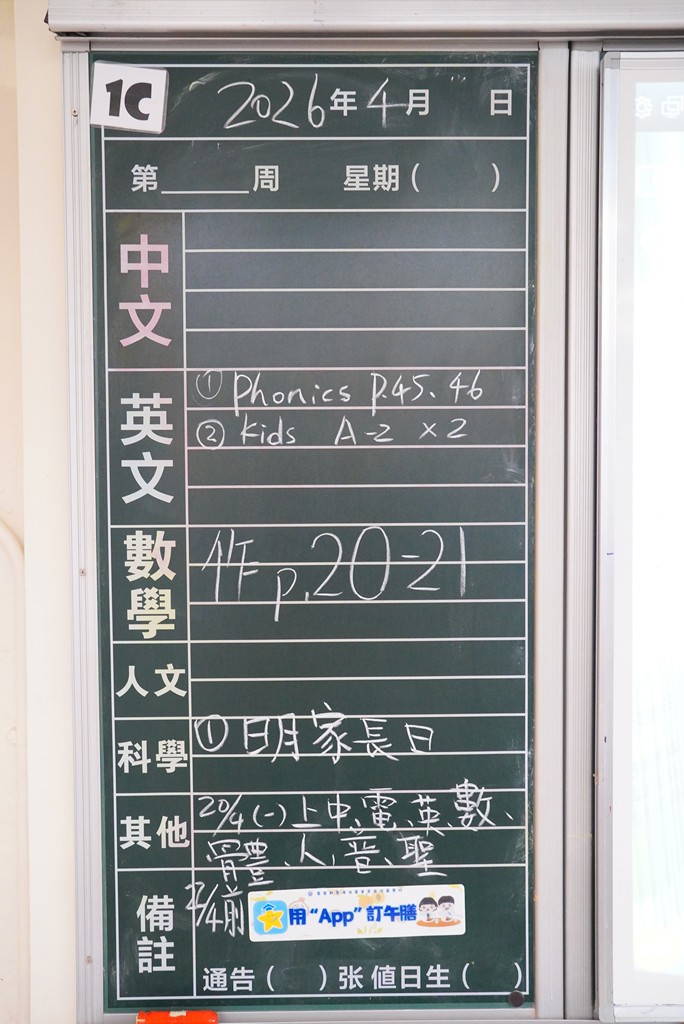 1C
2026年4月 日
第 周 星期( )
中文
英文
① Phonics p.45、46
② Kids A-z ×2
數學
作 p.20-21
人文
科學
① 明家長日
其他
20/4(一)上中、電、英、數、
體、人、普、聖
備註
/4前
用“App”訂午膳
通告( )张 值日生( )